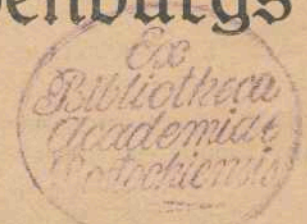 enburgs
Ex
Bibliotheca
Academiae
Rostochiensis